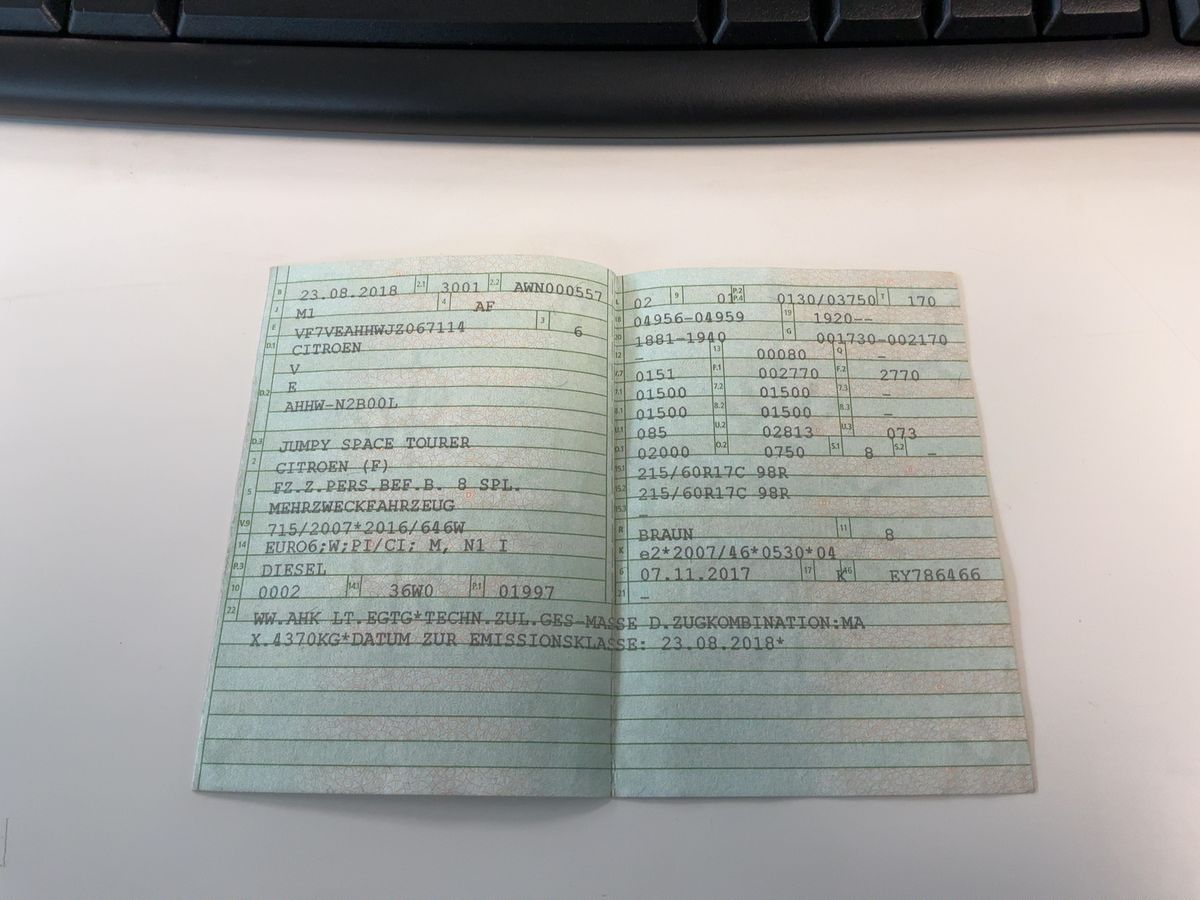 B 23.08.2018 2.1 3001 2.2 AWN000557
J M1 4 AF
E VF7VEAHHWJZ067114 3 6
D.1 CITROEN
V
D.2 E
AHHW-N2B00L
D.3 JUMPY SPACE TOURER
2 CITROEN (F)
5 FZ.Z.PERS.BEF.B. 8 SPL.
MEHRZWECKFAHRZEUG
V.9 715/2007*2016/646W
14 EURO6;W;PI/CI; M, N1 I
P.3 DIESEL
10 0002 14.1 36W0 P.1 01997
L 02 9 01 P.2 P.4 0130/03750 T 170
18 04956-04959 19 1920--
20 1881-1940 G 001730-002170
12 – 13 00080 Q –
V.7 0151 F.1 002770 F.2 2770
7.1 01500 7.2 01500 7.3 –
8.1 01500 8.2 01500 8.3 –
U.1 085 U.2 02813 U.3 073
O.1 02000 O.2 0750 S.1 8 S.2 –
15.1 215/60R17C 98R
15.2 215/60R17C 98R
15.3 –
R BRAUN 11 8
K e2*2007/46*0530*04
6 07.11.2017 17 K 16 EY786466
21 –
22 WW.AHK LT.EGTG*TECHN.ZUL.GES-MASSE D.ZUGKOMBINATION:MA
X.4370KG*DATUM ZUR EMISSIONSKLASSE: 23.08.2018*